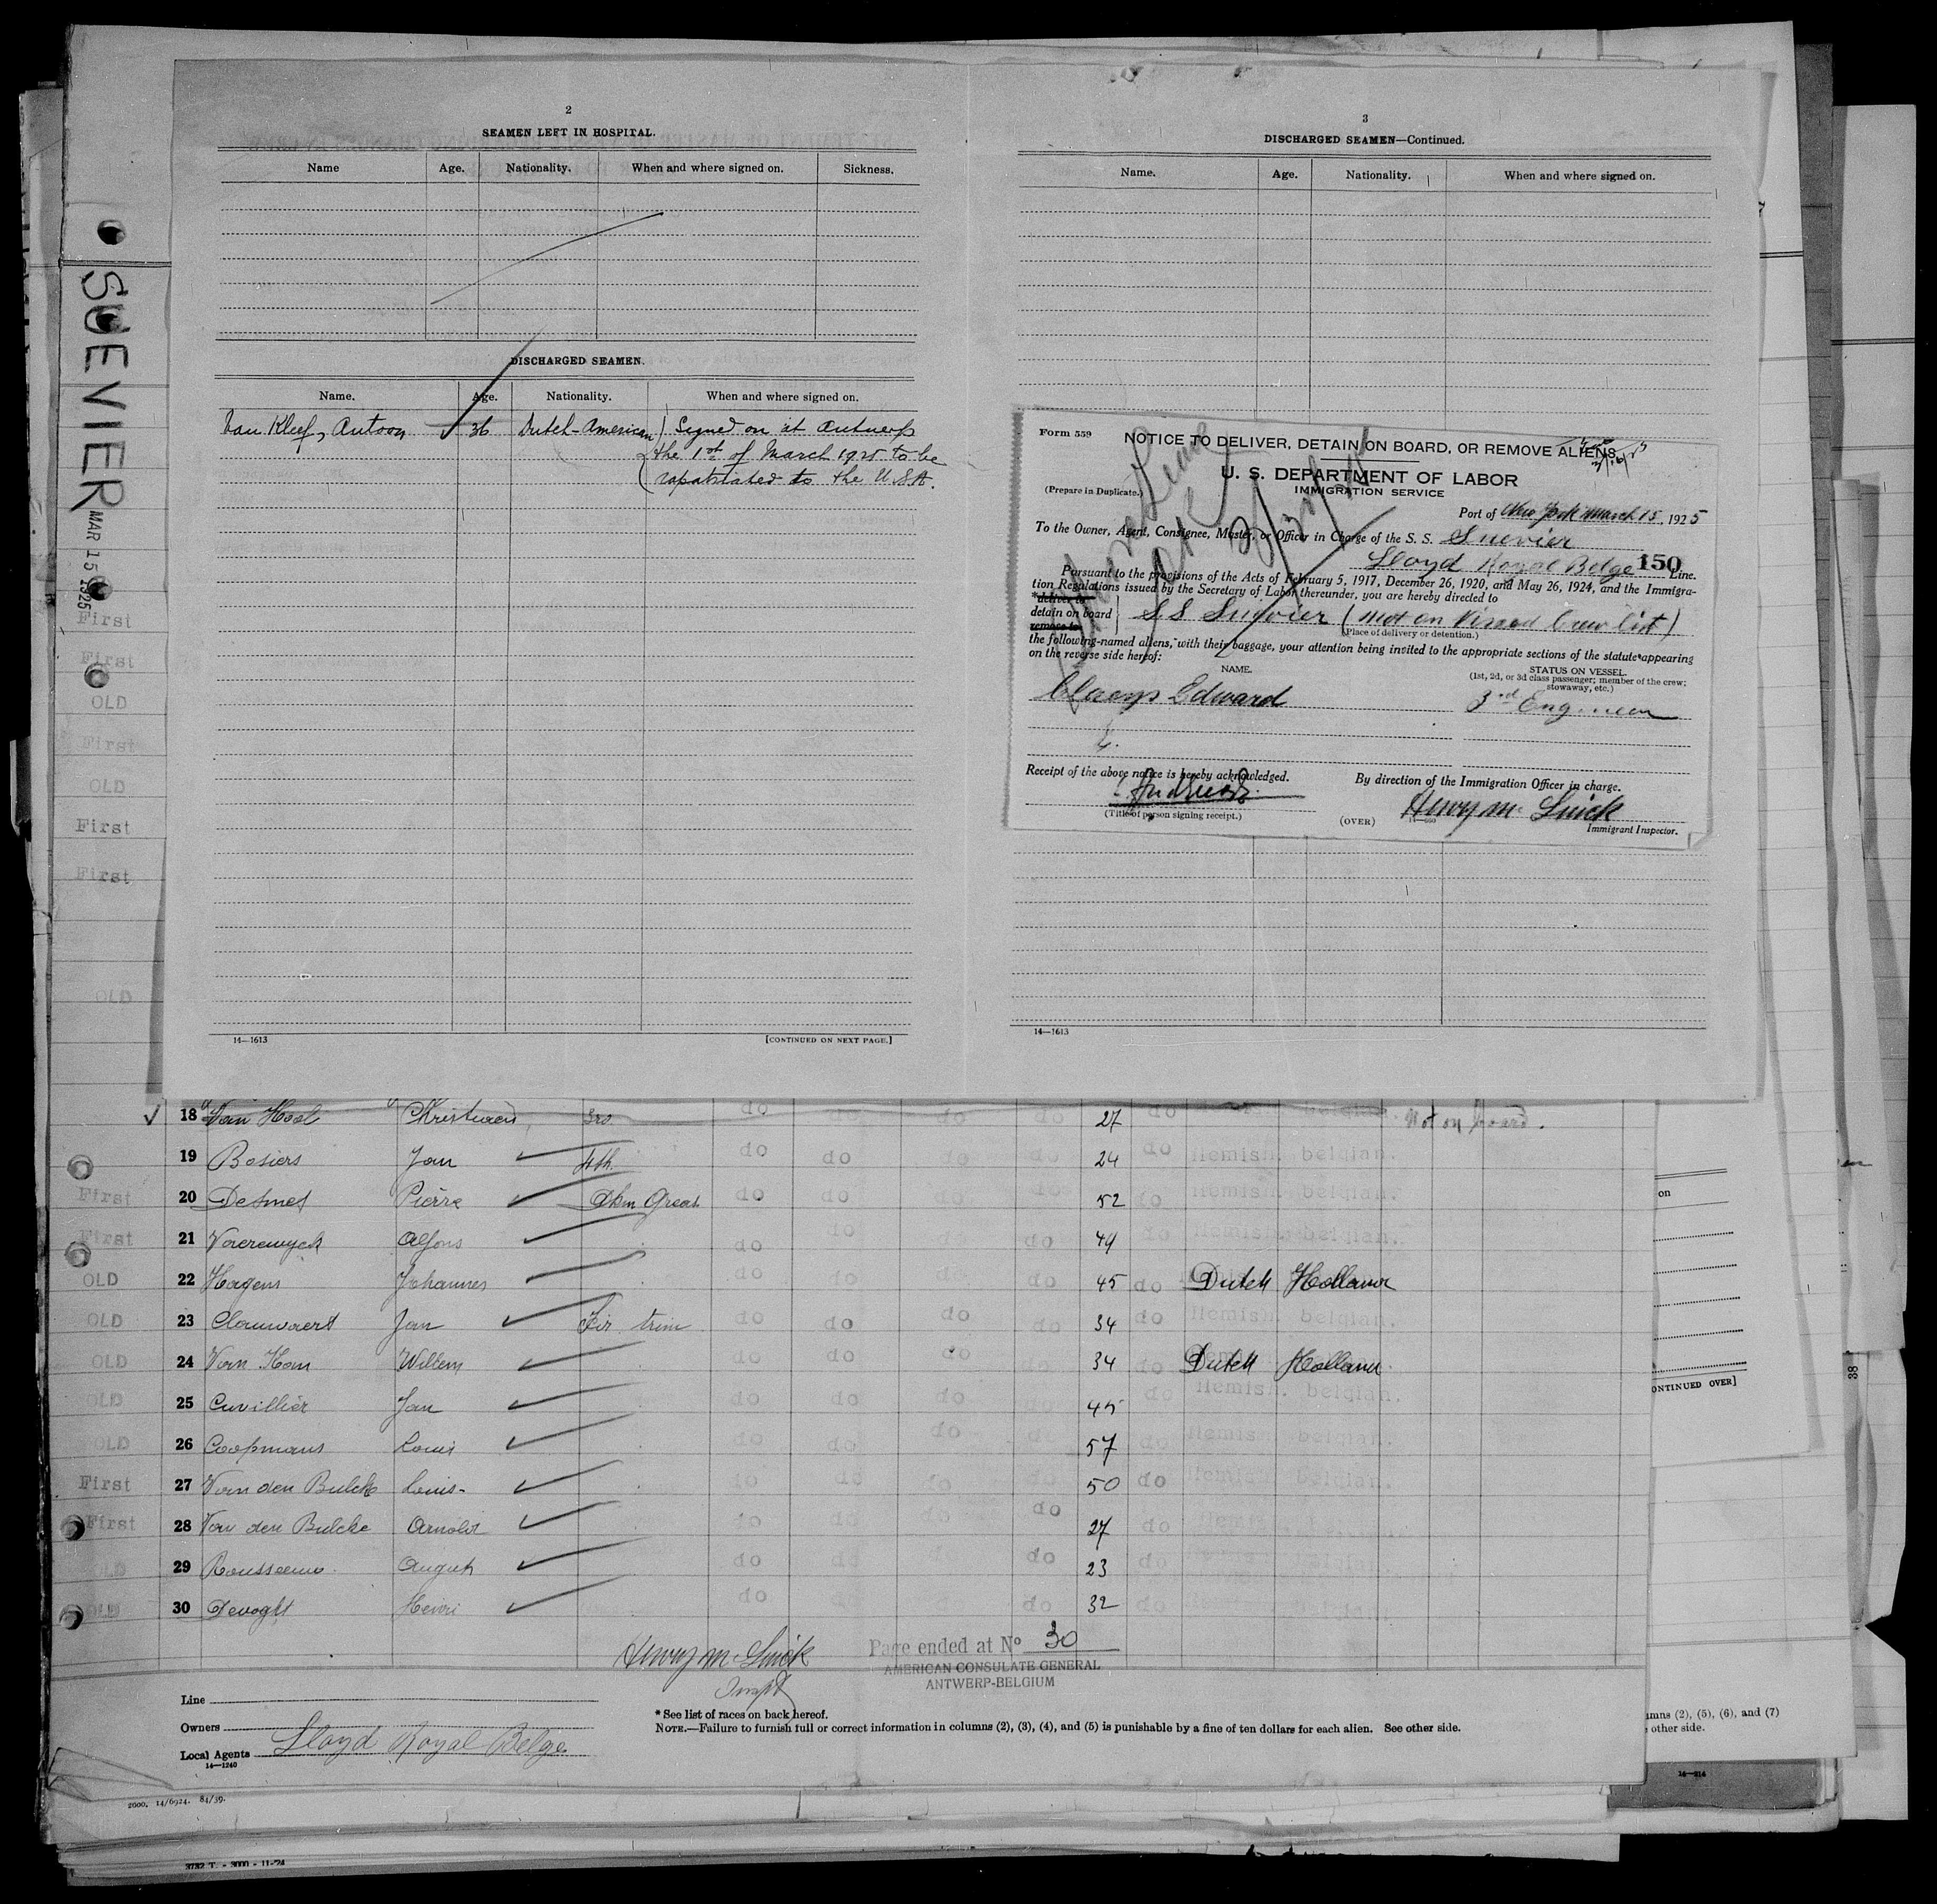 SUEVIER
MAR 15 1925
2
SEAMEN LEFT IN HOSPITAL.
Name Age. Nationality. When and where signed on. Sickness.
DISCHARGED SEAMEN.
Name. Age. Nationality. When and where signed on.
Van Kleef, Antoon 36 Dutch-American Signed on at Antwerp
the 1st of March 1925 to be
rapatriated to the U.S.A.
14—1613 [CONTINUED ON NEXT PAGE.]
3
DISCHARGED SEAMEN—Continued.
Name. Age. Nationality. When and where signed on.
Form 559
NOTICE TO DELIVER, DETAIN ON BOARD, OR REMOVE ALIENS
U. S. DEPARTMENT OF LABOR
IMMIGRATION SERVICE
(Prepare in Duplicate.)
Port of New York March 15, 1925
To the Owner, Agent, Consignee, Master, or Officer in Charge of the S. S. Suevier
Lloyd Royal Belge 150 Line.
Pursuant to the provisions of the Acts of February 5, 1917, December 26, 1920, and May 26, 1924, and the Immigra-
tion Regulations issued by the Secretary of Labor thereunder, you are hereby directed to
*deliver to
detain on board S.S Suevier (not on Visaed Crew list)
remove to
(Place of delivery or detention.)
the following-named aliens, with their baggage, your attention being invited to the appropriate sections of the statute appearing
on the reverse side hereof:
NAME. STATUS ON VESSEL.
(1st, 2d, or 3d class passenger; member of the crew;
stowaway, etc.)
Claeys Edward 3rd Engineer
Receipt of the above notice is hereby acknowledged. By direction of the Immigration Officer in charge.
Henry M. Luick
(Title of person signing receipt.) (OVER) Immigrant Inspector.
14—1613
First
First
OLD
First
OLD
First
First
OLD
18 Van Hool Christiaen 3rd do do do do 27 do belgian. Not on board.
19 Bosiers Jan 4th. do do do do 24 do flemish. belgian.
First 20 Desmet Pierre Dkm Greas do do do do 52 do flemish. belgian.
First 21 Vaerewyck Alfons do do do 49 do flemish. belgian.
OLD 22 Hagens Johannes do do do do 45 do Dutch Holland
OLD 23 Clauwaert Jan Fir trim do do do do 34 do flemish. belgian.
OLD 24 Van Ham Willem do do do do 34 do Dutch Holland
OLD 25 Cuvillier Jan do do do 45 do flemish. belgian.
OLD 26 Coopmans Louis do do do d 57 do flemish. belgian.
First 27 Van den Bulcke Louis- do do do do 50 do flemish. belgian.
First 28 Van den Bulcke Arnold do do do do 27 do
OLD 29 Rousseeuw August do do do 23 do belgian.
OLD 30 Devoght Henri do do do do 32 do belgian.
Henry M. Luick
Page ended at No 30
AMERICAN CONSULATE GENERAL
ANTWERP-BELGIUM
Line
Owners
Lloyd Royal Belge
Local Agents
14—1240
* See list of races on back hereof.
NOTE.—Failure to furnish full or correct information in columns (2), (3), (4), and (5) is punishable by a fine of ten dollars for each alien. See other side.
2000. 14/6924. 84/39.
3732 T. - 3000 - 11-24
on
ONTINUED OVER]
38
umns (2), (5), (6), and (7)
other side.
14—214